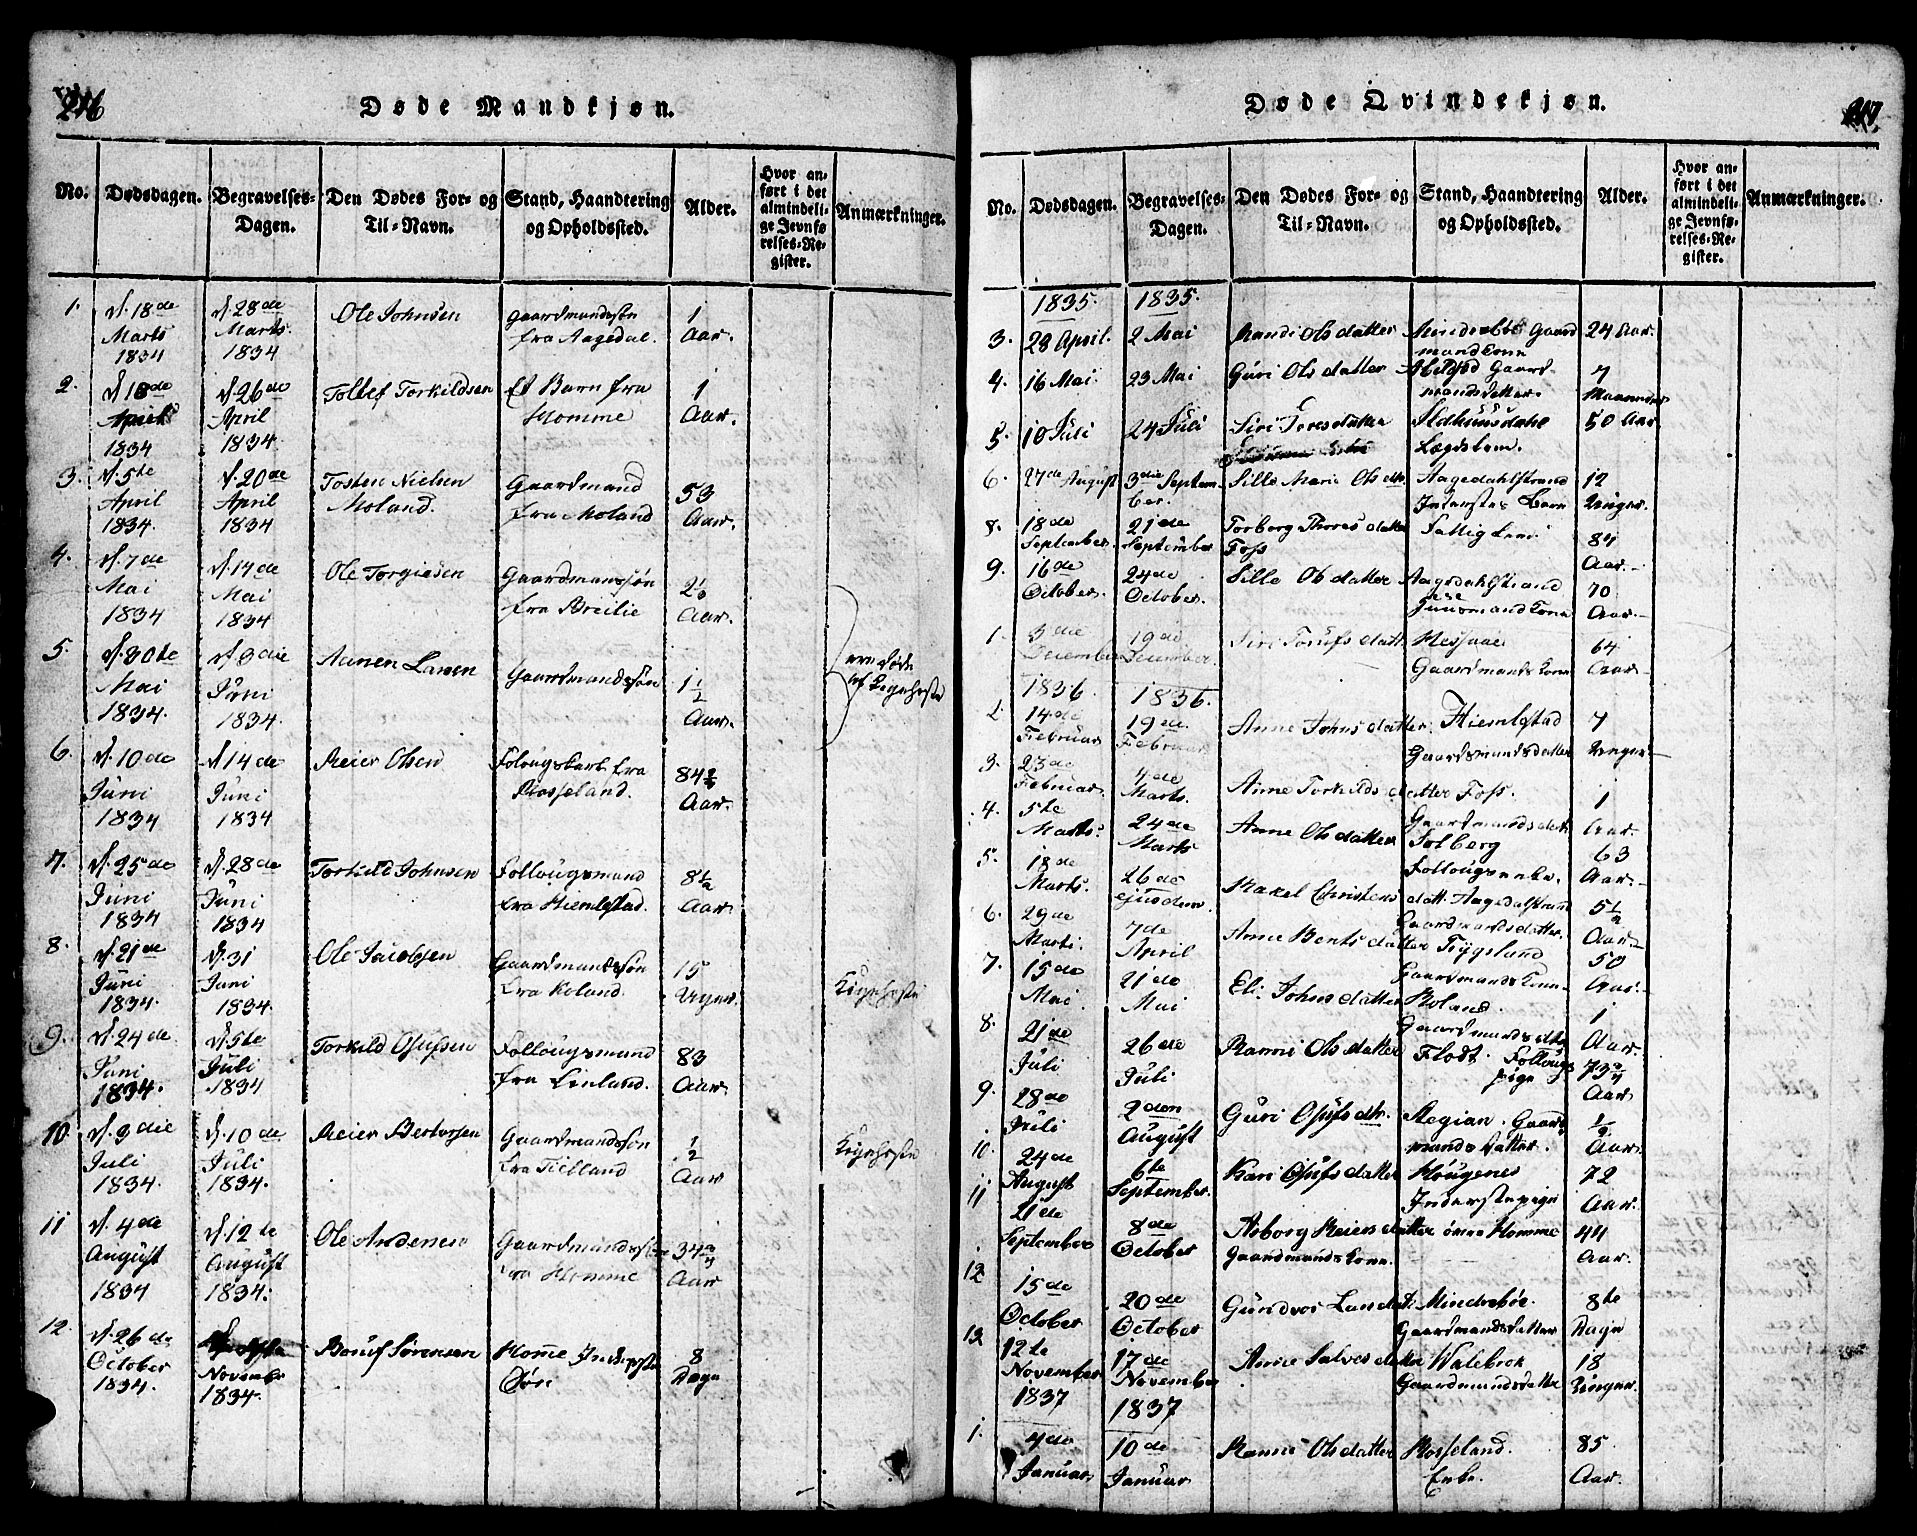 216
Døde Mandkjøn.
No. Dødsdagen. Begravelses-Dagen. Den Dødes For- og Til-Navn. Stand, Haandtering og Opholdssted. Alder. Hvor anført i det almindelige Jevnførelses-Register. Anmærkninger.
1. d. 18de d. 28de Ole Johnsen Gaardmandssøn 1
Marts Marts fra Aagedal. Aar.
1834 1834
2. d. 18de d. 26de Tollef Torkildsen Et Barn fra 1
April April Homme Aar.
1834 1834.
3. d. 5te d. 20de Tosten Nielsen Gaardmand 53
April April Moland. fra Moland Aar.
1834. 1834
4. d. 7de d. 14de Ole Torgiesen Gaardmandssøn 2
Mai Mai fra Breilie Aar.
1834 1834
5. d. 30te d. 9die Aanen Larsen Gaardmandssøn 1 1/2
Mai Juni Aar.
1834. 1834. Kighoste
6. d. 10de d. 14de Reier Olsen Folougskarl fra 84
Juni Juni Rosseland. Aar.
1834 1834
7. d. 25de d. 28de Torkild Johnsen Follougsmand 8 1/2
Juni Juni fra Hiemlestad. Aar.
1834 1834
8. d. 21de d. 31 Ole Jacobsen Gaardmandssøn 15
Juni Juni fra Roland. Uger. Kighoste
1834. 1834.
9. d. 24de d. 5te Torkild Osufsen Follougsmand 83
Juni Juli fra Linland. Aar.
1834. 1834
10. d. 9die d. 10de Reier Berorsen Gaardmandssøn 1/2
Juli Juli fra Tielland Aar Kighoste
1834. 1834.
11 d. 4de d. 12te Ole Andersen Gaardmandssøn 34 3/4
August August fra Homme Aar
1834 1834.
12. d. 26de Boruf Sørensen Homme Inderste 8
October November Søn Dage
1834. 1834.
Døde Qvindekjøn.
217.
No. Dødsdagen. Begravelses-Dagen. Den Dødes For- og Til-Navn. Stand, Haandtering og Opholdssted. Alder. Hvor anført i det almindelige Jevnførelses-Register. Anmærkninger.
1835. 1835.
3. 28 April. 2 Mai Randi Olsdatter Mindrebøe Gaard 24 Aar.
mandkone
4. 16 Mai. 23 Mai Guri Olsdatter Gaard- 7
mandsdatter. Maaneder
5. 10 Juli 24 Juli Siri Toresdatter 50 Aar
Lægdslem.
6. 27de August 3die Septem- Sille Marie Olsdtr. Aagedahlstrand 12
ber. Inderstes Barn Uger.
8. 18de 21de Torborg Thoresdatter Fattiglem 84
September. September Foss Aar.
9. 16de 24de Sille Olsdatter Aagedahlstrand 70
October. October. Huusmandkone Aar.
1. 3die 19de Siri Torufsdatt. Hessaae 64
December December. Gaardmandskone Aar.
1836. 1836.
2. 14de 19de Anne Johnsdatter. Hiemlestad 7
Februar Februar Gaardmandsdatter Uger
3. 23de 4de Anne Torkildsdatter Foss. 1
Februar. Marts. Gaardmandsdatt. Aar.
4. 5te 24de Anne Olsdatter Solberg 63
Marts. Marts Follougsenke. Aar.
5. 18de 26de Rakel Christensdatt. Aagedalstrand 5 1/2
Marts. ejusdem. Gaardmandsdatter. Aar.
6. 29de 7de Anne Bentsdatter Trygsland 50
Marts. April Gaardmandskone Aar.
7. 15de 21de Eli Johnsdatter Roland. 1
Mai Mai Gaardmandsdtr. Aar.
8. 21de 26de Ranni Olsdatter Flodt. Follougs 73 3/4
Juli Juli pige Aar.
9. 28de 2den Guri Osufsdtr. Stegian. Gaard- 1/2
Juli August mandsdatter. Aar.
10. 24de 6te Kari Osufsdatter Hougenes 72
August September. Inderstepige Aar.
11 21de 8de Asborg Reiersdatter øvre Homme 44
September October Gaardmandskone. Aar.
12 15de 20de Gundvor Larsdatt. Mindrebøe. 8te
October October Gaardmandsdatter Dage
13. 12te 17de Anne Salvesdatter Walebrok 18
November November Gaardmandsdatter Uger.
1837 1837
1. 4de 10de Ranni Olsdatter Rosseland. 85
Januar. Januar Enke. Aar.